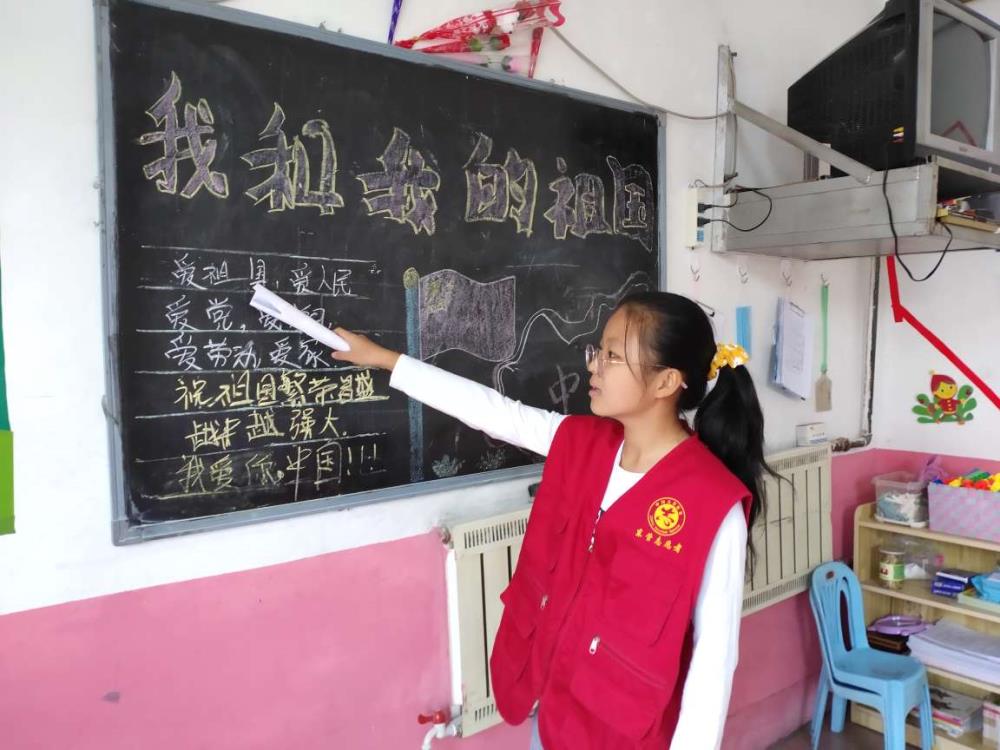 我和我的祖国
爱祖国,爱人民
爱党,
爱劳动,爱家
祝祖国繁荣昌盛
越来越强大
我爱你,中国!!!
中
东营志愿者